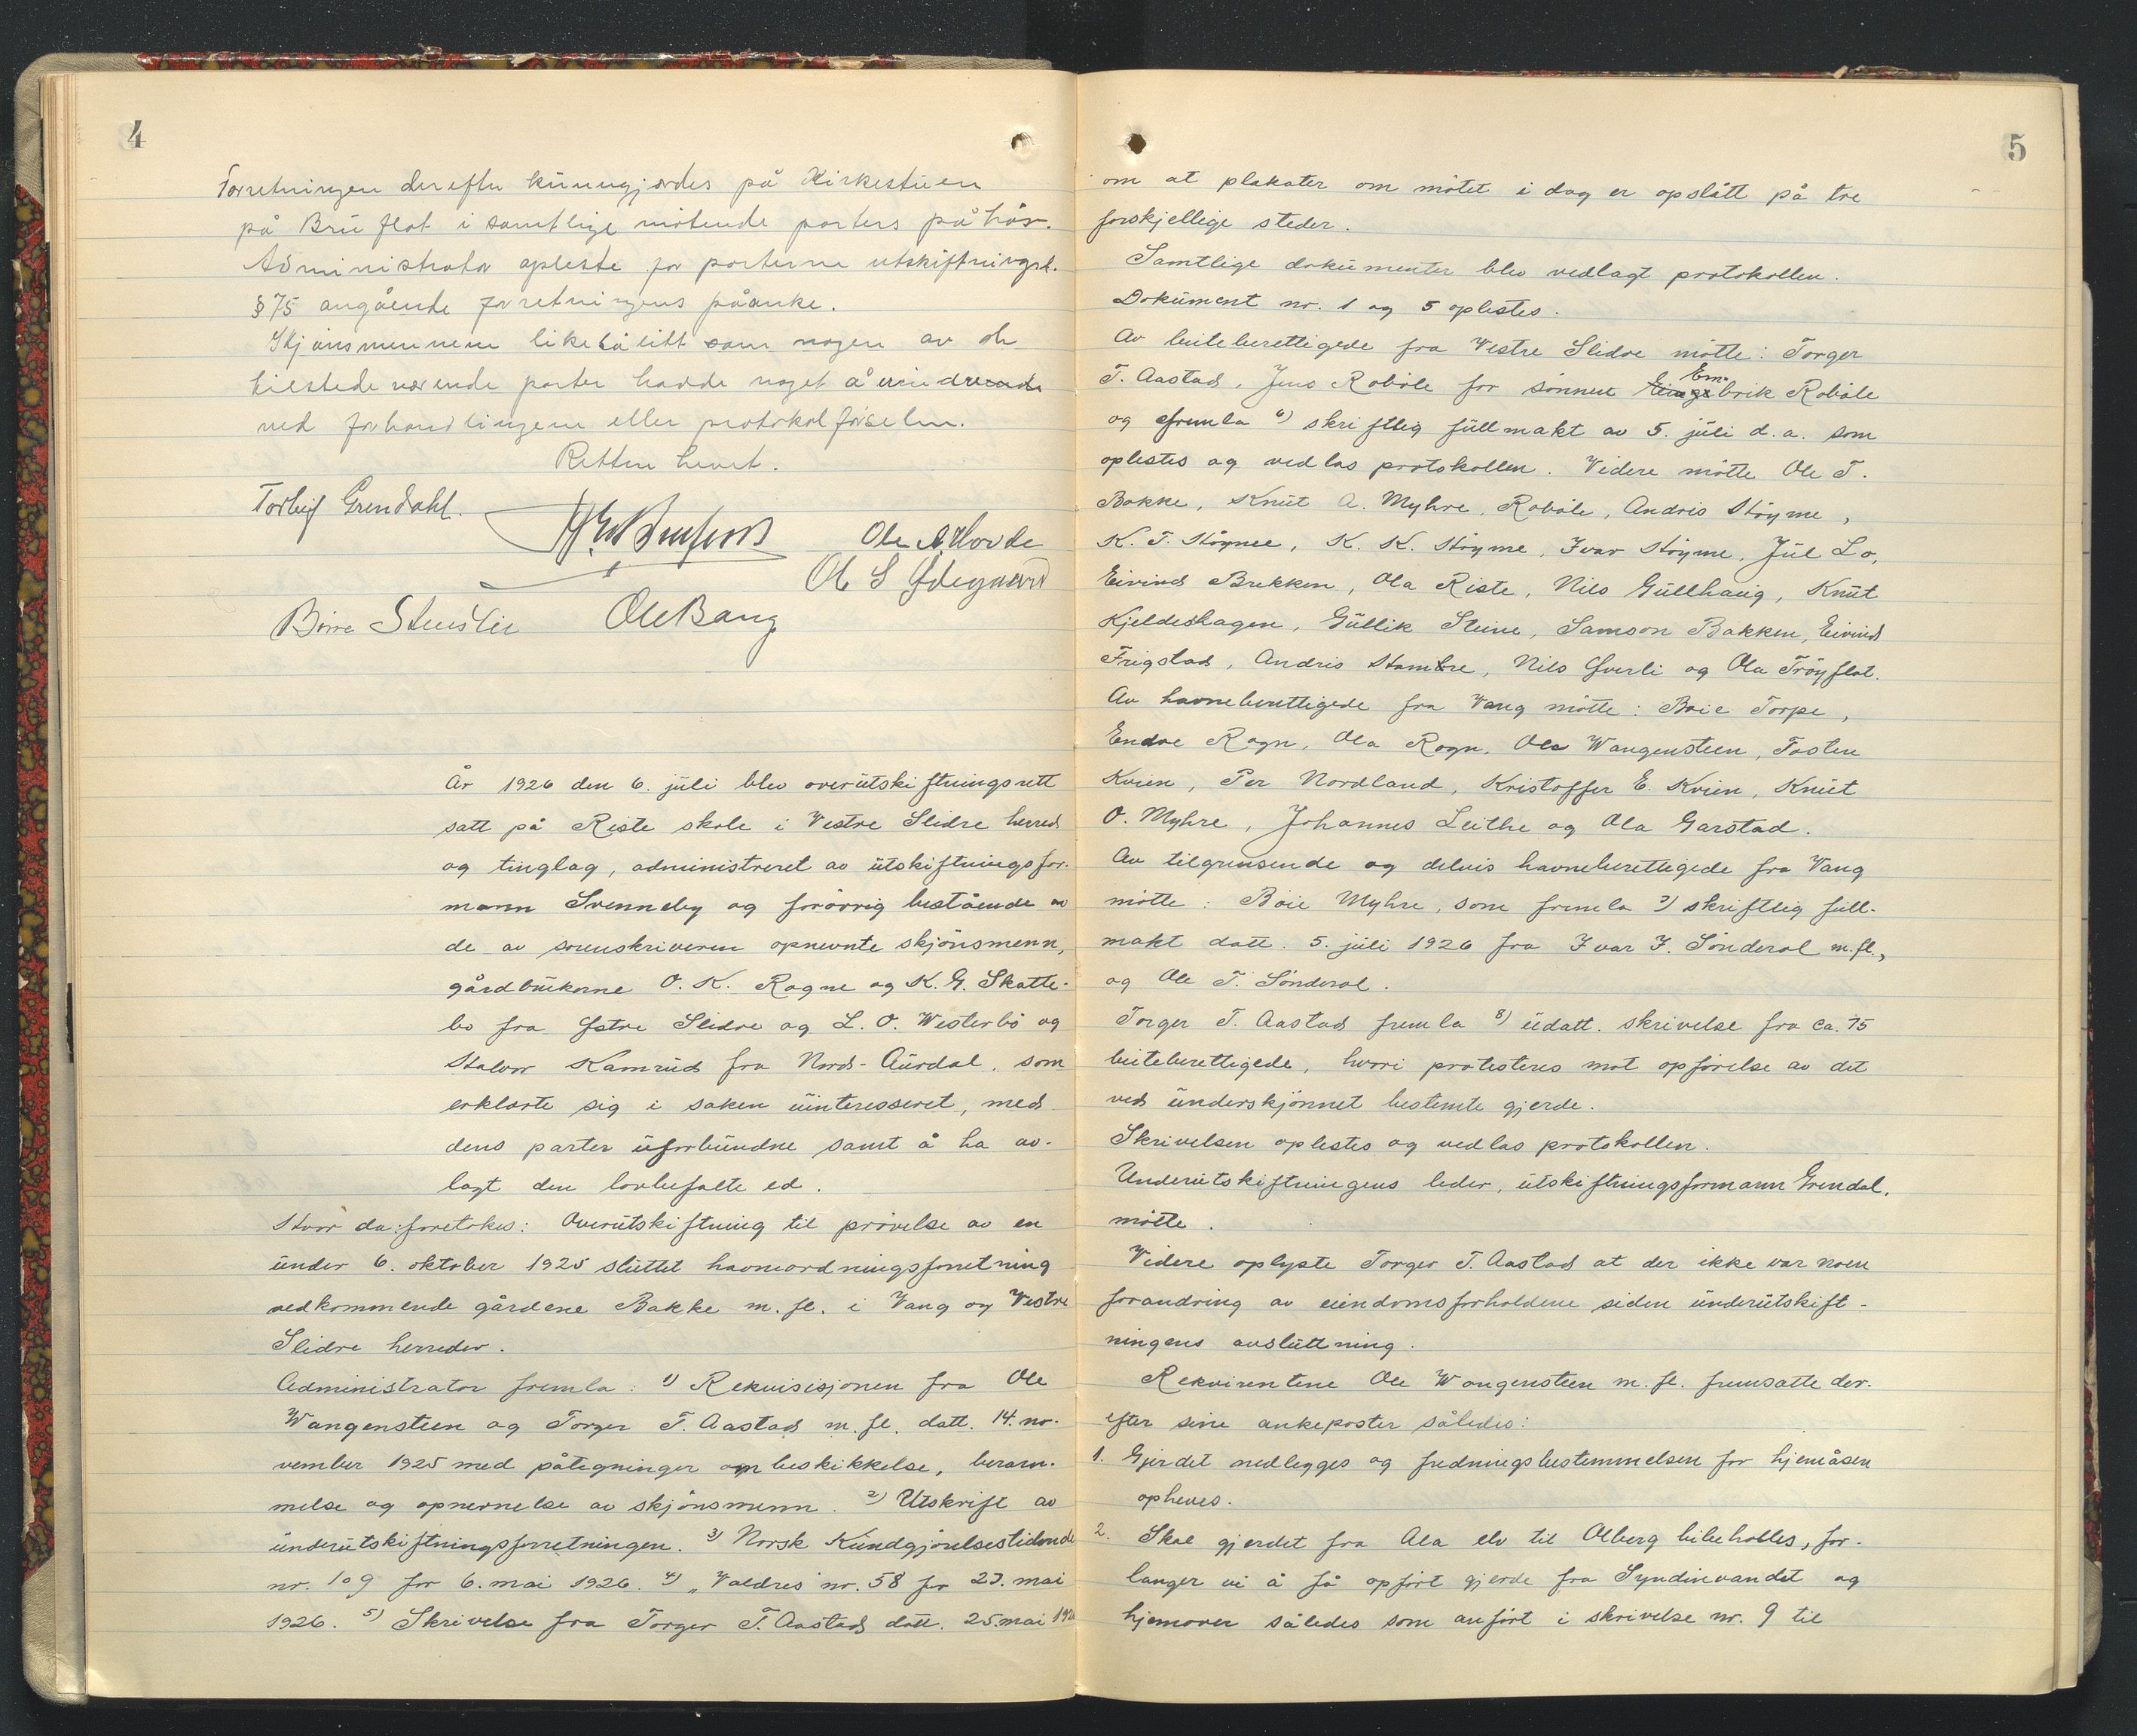 4
Forretningen derefter kunngjordes på Kirkestuen
på Bruflat i samtlige mötende parters påhör.
Administrator opleste for parterne utskiftningsl.
§ 75 angående forretningens påanke.
Skjönsmennene likeså litt som nogen av de
tilstedeværende parter hadde noget å erindre
ved forhandlingene eller protokolförselen.
Retten hevet.
Torleif Grendahl.
Ole A. Hovde
Ol S Ödegaard
Ole Bang
År 1926 den 6. juli blev overutskiftningsrett
satt på Riste skole i Vestre Slidre herred
og tinglag, administreret av utskiftningsfor-
mann Svenneby og forövrig bestående av
de av sorenskriveren opnevnte skjönsmenn,
gårdbrukerne O. K. Rogne og K. G. Skatte-
bo fra Östre Slidre og L. O. Westerbö og
Halvor Kamrud fra Nord-Aurdal, som
erklærte sig i saken uinteresseret, med
dens parter uforbundne samt å ha av-
lagt den lovbefalte ed.
Hvor da foretokes: Overutskiftning til prövelse av en
under 6. oktober 1925 sluttet havneordningsforretning
vedkommende gårdene Bakke m. fl. i Vang og Vestre
Slidre herreder.
Administrator fremla: 1) Rekvisisjonen fra Ole
Wangensteen og Torger T. Aastad m. fl. datt. 14. no-
vember 1925 med påtegninger om beskikkelse, beram-
melse og opnevnelse av skjönsmenn. 2) Utskrift av
underutskiftningsforretningen. 3) Norsk Kundgjörelsestidende
nr. 109 for 6. mai 1926. 4) "Valdres" nr. 58 for 23. mai
1926. 5) Skrivelse fra Torger T. Aastad datt. 25. mai 1926
5
om at plakater om mötet i dag er opslått på tre
forskjellige steder.
Samtlige dokumenter blev vedlagt protokollen.
Dokument nr. 1 og 5 oplestes.
Av beiteberettigede fra Vestre Slidre mötte: Torger
T. Aastad, Jens Roböle for sönnen Embrik Roböle
og fremla 6) skriftlig fullmakt av 5. juli d.a. som
oplestes og vedlas protokollen. Videre mötte Ole T.
Bakke, Knut A. Myhre, Roböle, Andris Höyme,
K. T. Höyme, K. K. Höyme, Ivar Höyme, Jul Lo,
Eivind Brekken, Ola Riste, Nils Gullhaug, Knut
Kjeldeshagen, Gullik Steine, Samson Bakken, Eivind
Frigstad, Andris Hamre, Nils Överli og Ola Tröyflat.
Av havneberettigede fra Vang mötte: Boie Torpe,
Endre Rogn, Ola Rogn, Ole Wangensteen, Tosten
Kvien, Per Nordland, Kristoffer E. Kvien, Knut
O. Myhre, Johannes Leithe og Ola Garstad.
Av tilgrensende og delvis havneberettigede fra Vang
mötte: Böie Myhre, som fremla 7) skriftlig full-
makt datt. 5. juli 1926 fra Ivar I. Sönderol m. fl.,
og Ole T. Sönderol.
Torger T. Aastad fremla 8) udatt. skrivelse fra ca. 75
beiteberettigede, hvori protesteres mot opförelse av det
ved underskjönnet bestemte gjerde.
Skrivelsen oplestes og vedlas protokollen.
Underutskiftningens leder, utskiftningsformann Grendal,
mötte.
Videre oplyste Torger T. Aastad at der ikke var noen
forandring av eiendomsforholdene siden underutskift-
ningens avsluttning.
Rekvirentene Ole Wangensteen m. fl. fremsatte der-
efter sine ankeposter således:
1. Gjerdet nedlegges og fredningsbestemmelsen for hjemåsen
opheves.
2. Skal gjerdet fra Ala elv til Olberg bibeholdes, for-
langer vi å få opfört gjerde fra Syndinvandet og
hjemover således som anfört i skrivelse nr. 9 til